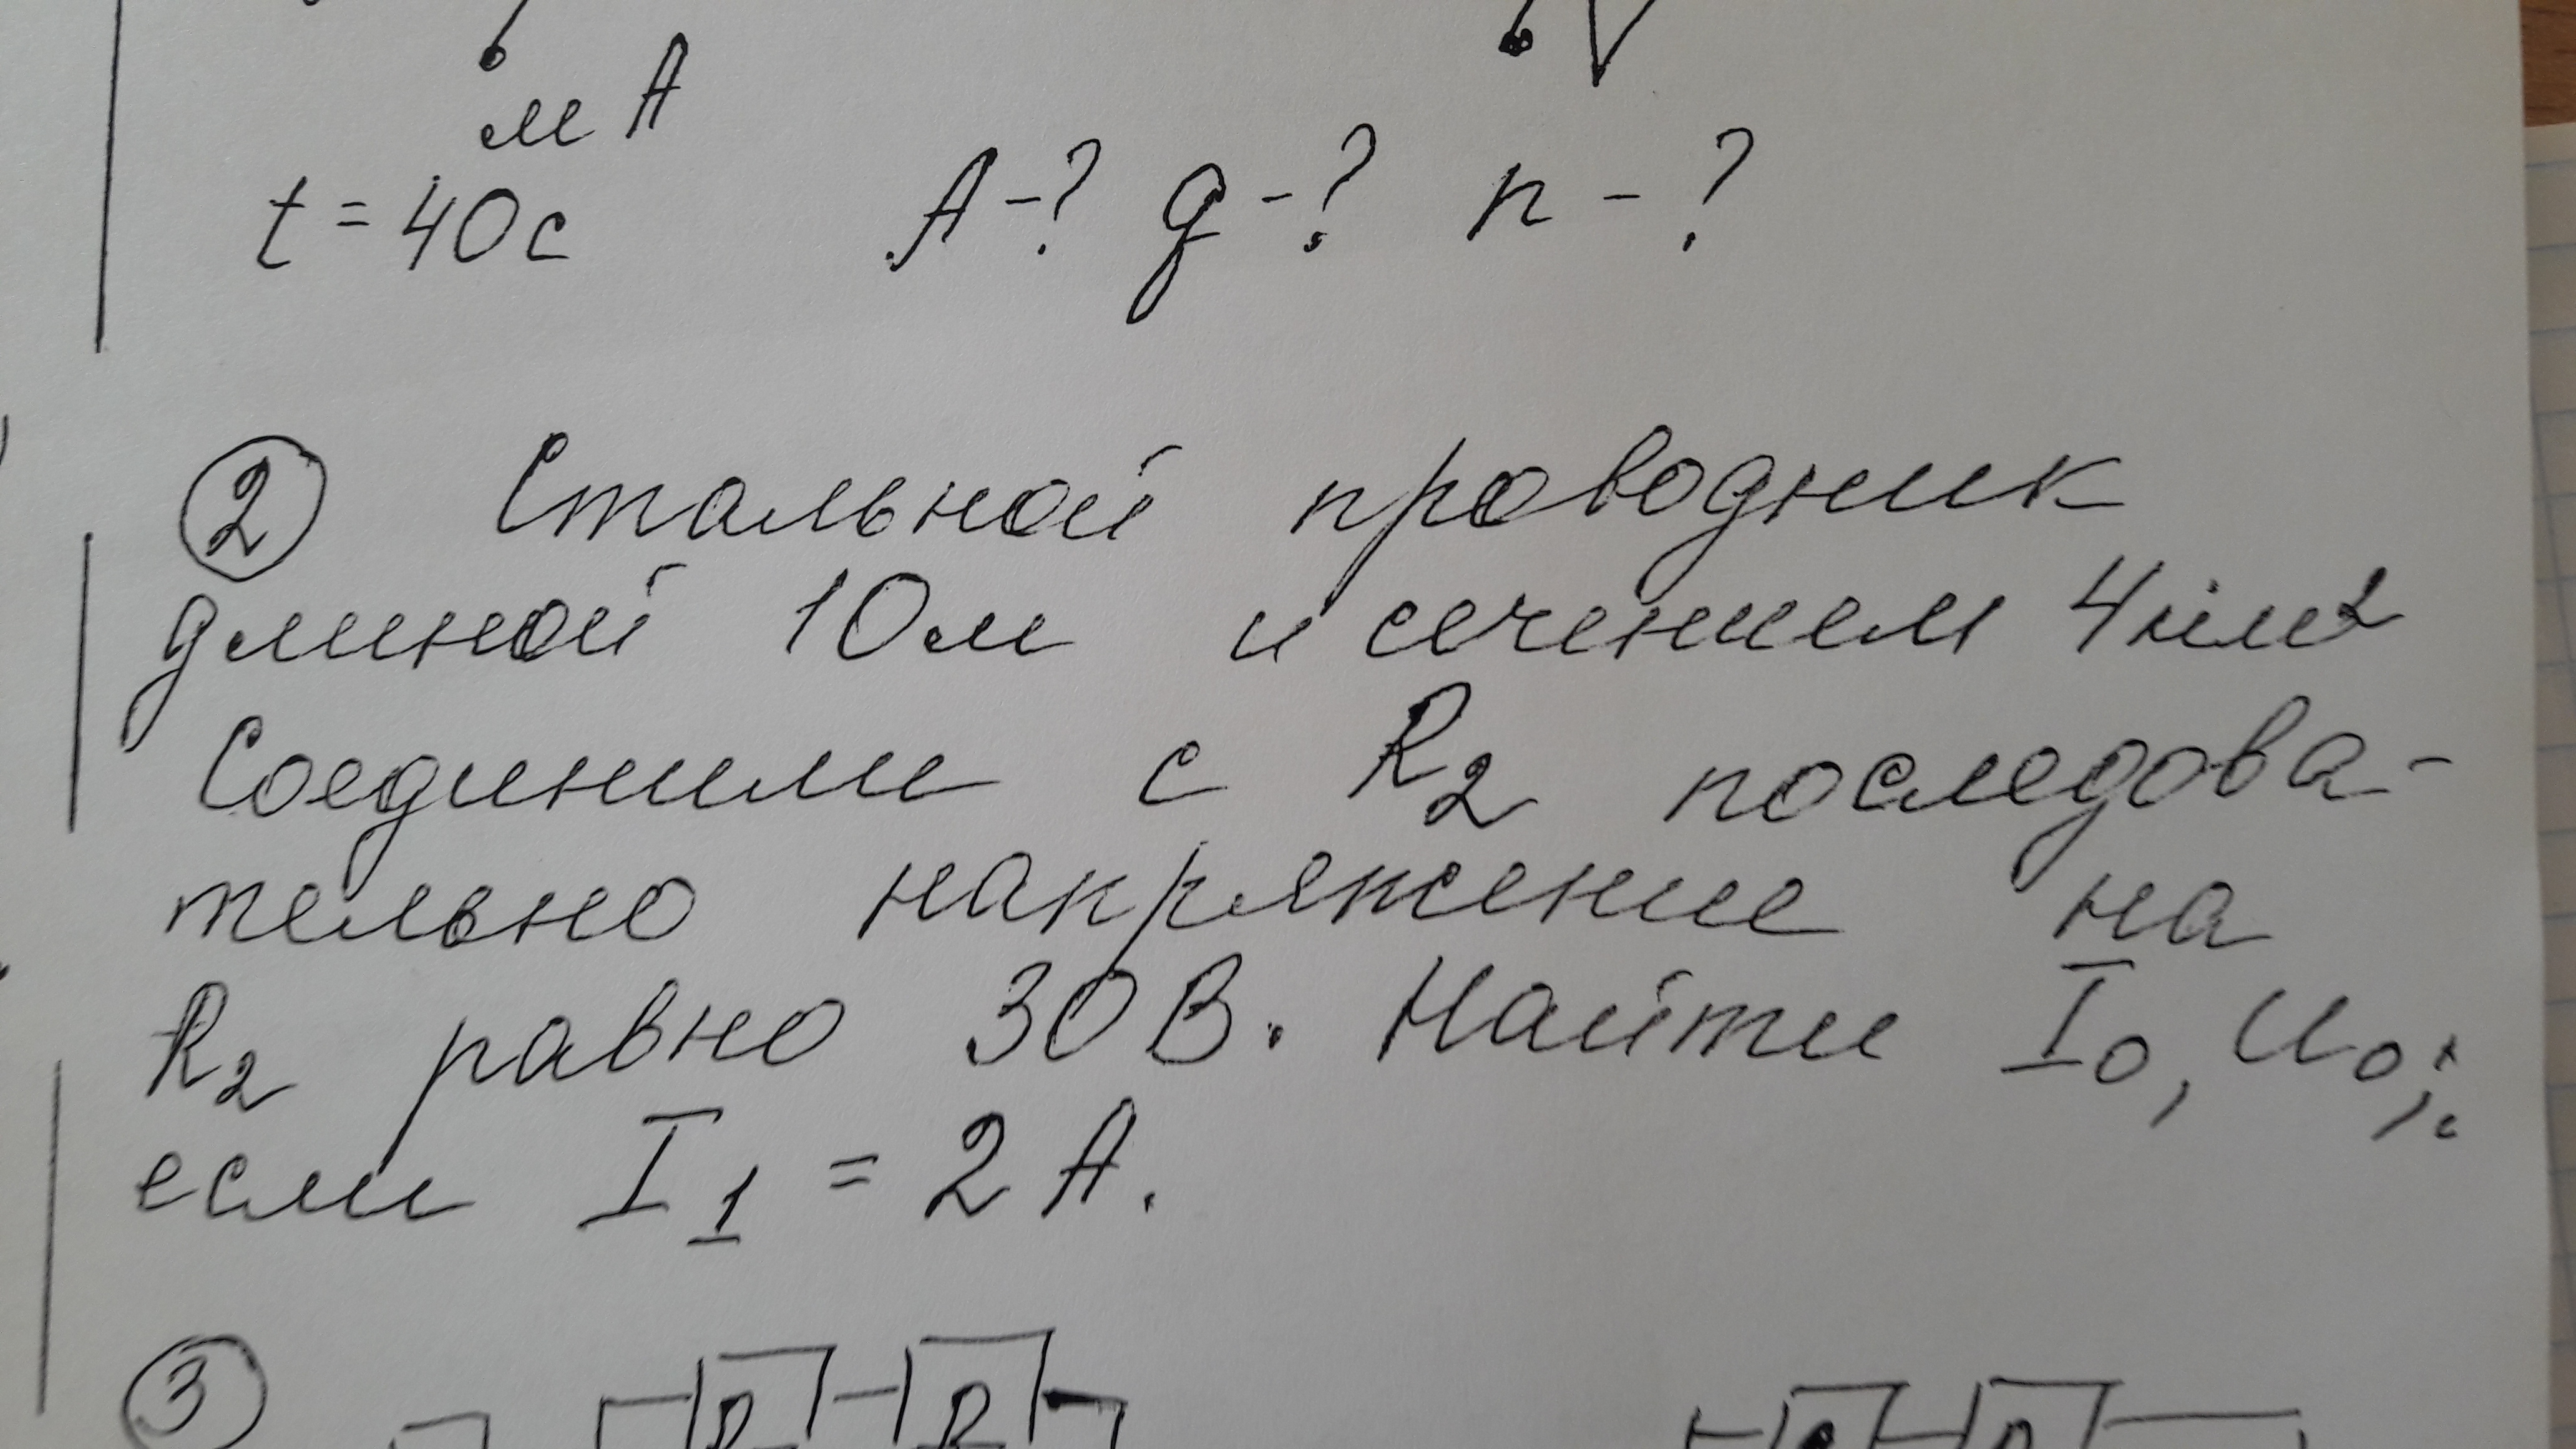 мА
t = 40с A-? q-? n-?
② Стальной проводник
длиной 10м и сечением 4мм²
Соединили с R₂ последова-
тельно напряжение на
R₂ равно 30В. Найти I₀, U₀;
если I₁ = 2А.
③ R R